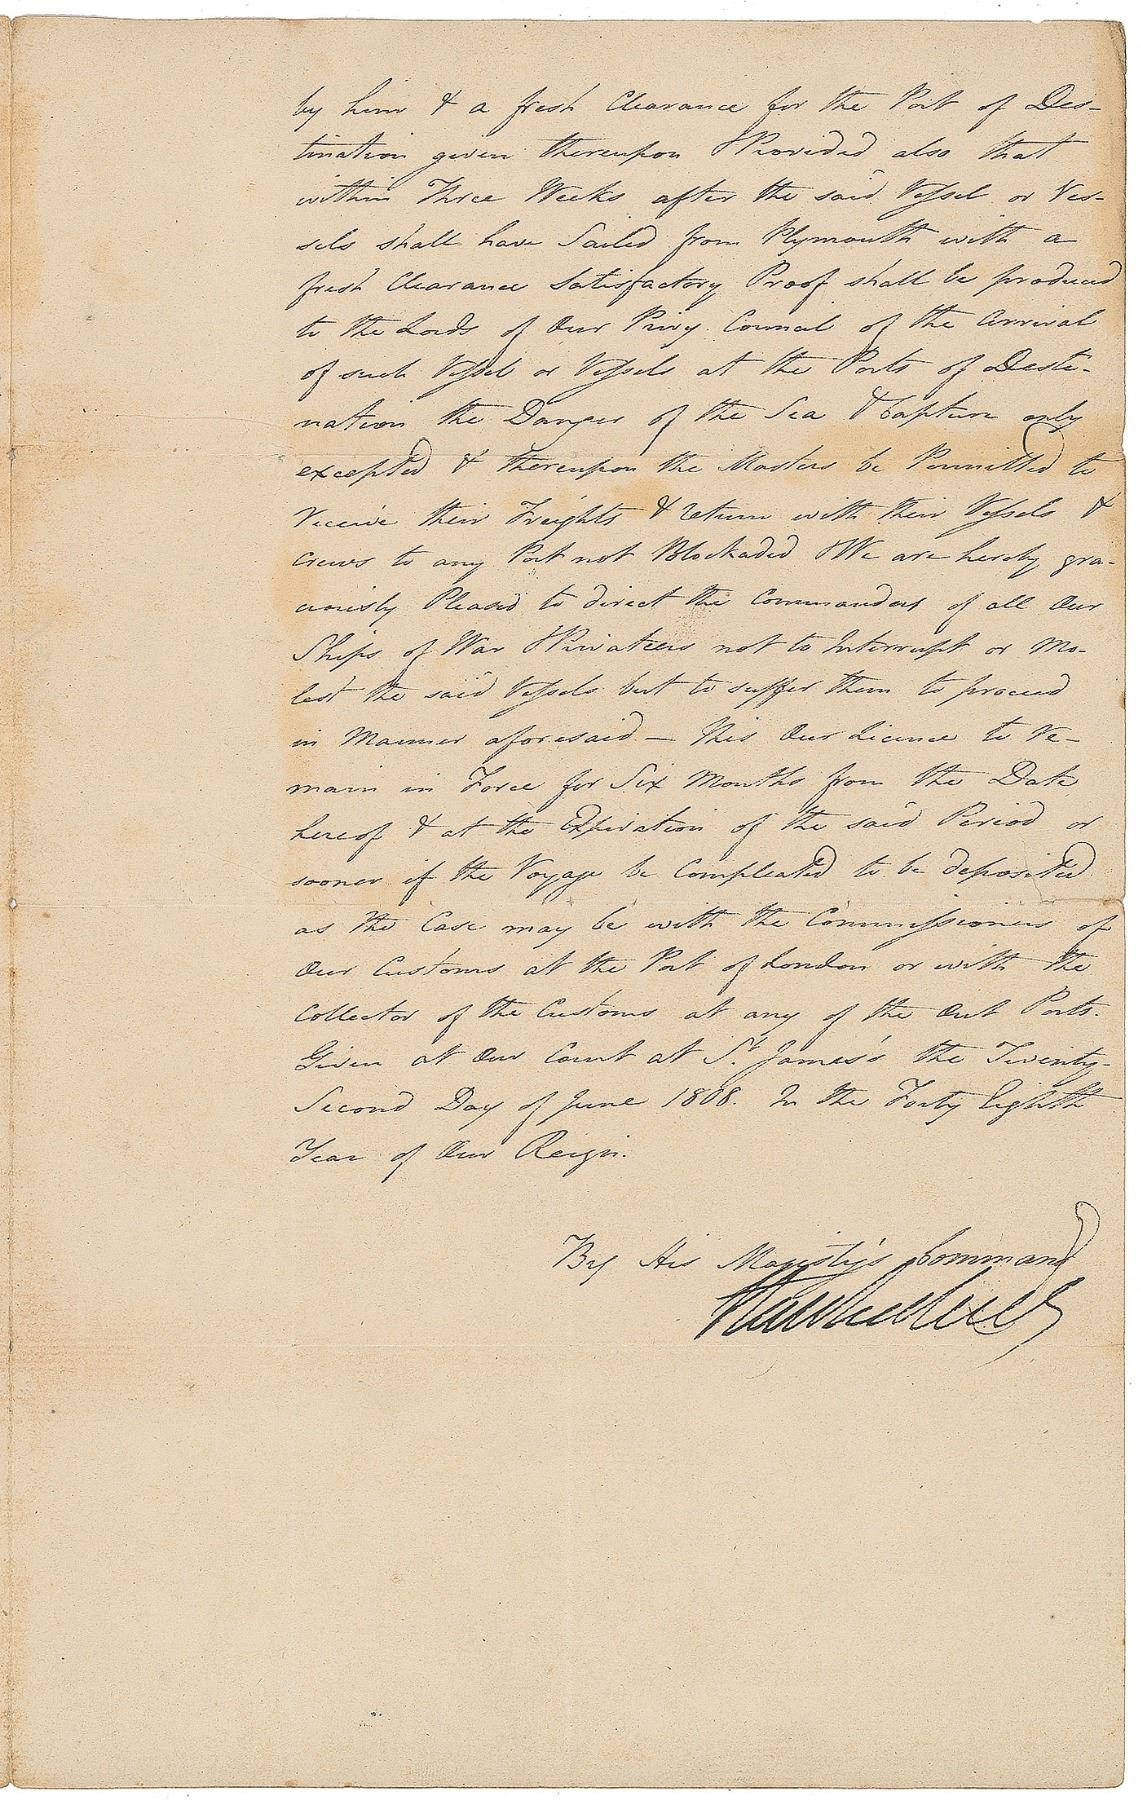 by him & a fresh Clearance for the Port of Des-
tination given thereupon & Provided also that
within Three Weeks after the said Vessel or Ves-
sels shall have Sailed from Plymouth with a
fresh Clearance Satisfactory Proof shall be produced
to the Lords of Our Privy Council of the Arrival
of such Vessel or Vessels at the Ports of Desti-
nation the Danger of the Sea & Capture only
excepted & thereupon the Masters be Permitted to
receive their Freights & return with their Vessels &
Crews to any Port not Blockaded & We are hereby gra-
ciously Pleased to direct the Commanders of all Our
Ships of War & Privateers not to Interrupt or Mo-
lest the said Vessels but to suffer them to proceed
in Manner aforesaid — This Our Licence to re-
main in Force for Six Months from the Date
hereof & at the Expiration of the said Period or
sooner if the Voyage be Compleated to be deposited
as the Case may be with the Commissioners of
Our Customs at the Port of London or with the
Collector of the Customs at any of the Out Ports.
Given at Our Court at St. James's the Twenty-
Second Day of June 1808. In the Forty Eighth
Year of Our Reign.
By His Majesty's Command
Hawkesbury